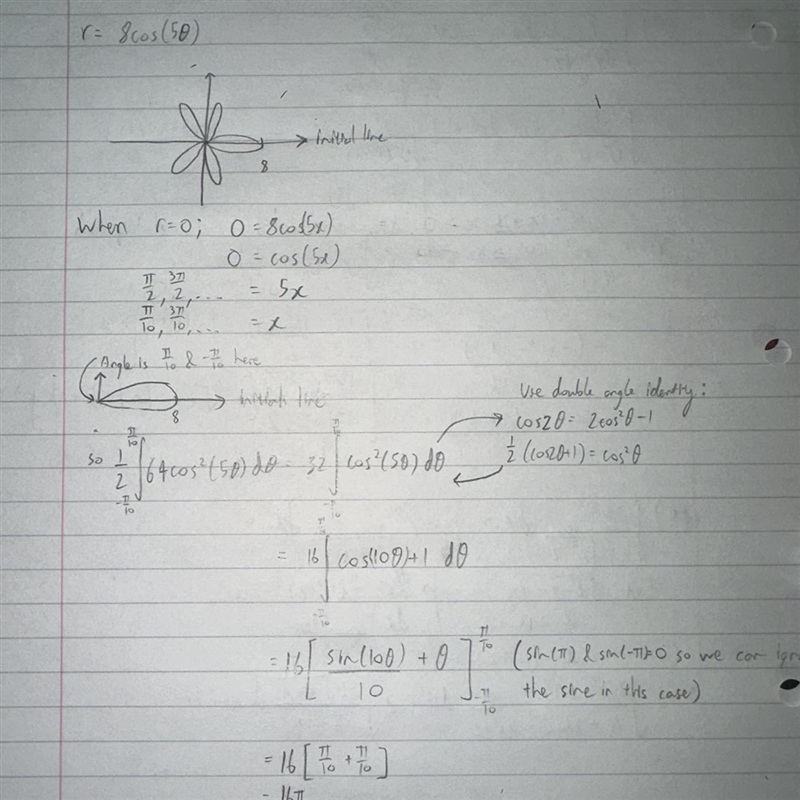 r= 8cos(5θ)
initial line
8
When r=0; 0 = 8cos(5x)
0 = cos(5x)
π/2, 3π/2, .... = 5x
π/10, 3π/10, .... = x
Angle is π/10 & -π/10 here
initial line
8
Use double angle identity:
cos2θ = 2cos²θ-1
1/2 (cos2θ+1) = cos²θ
so 1/2 ∫_{-π/10}^{π/10} 64cos²(5θ) dθ = 32 ∫_{-π/10}^{π/10} cos²(5θ) dθ
= 16 ∫_{-π/10}^{π/10} cos(10θ)+1 dθ
= 16[ sin(10θ)/10 + θ ]_{-π/10}^{π/10} (sin(π) & sin(-π)=0 so we can
the sine in this case)
= 16[ π/10 + π/10 ]
= 16π